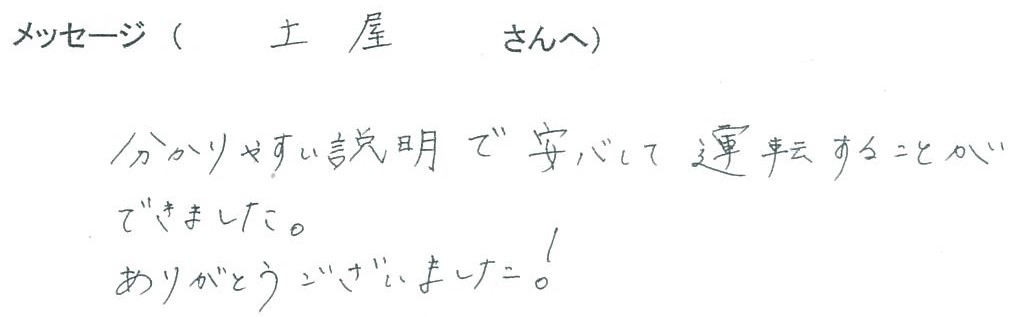 メッセージ（ 土屋 さんへ）
分かりやすい説明で安心して運転することが
できました。
ありがとうございました！